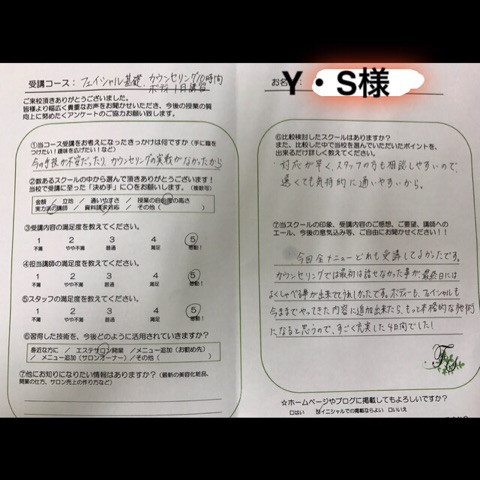 受講コース：フェイシャル基礎 カウンセリング10時間
ボディ1日講習
ご来校頂きありがとうございました。
皆様より幅広く貴重なお声をお聞かせいただき、今後の授業の質
向上に努めたくアンケートのご協力お願い致します。
①当コース受講をお考えになったきっかけは何ですか（手に職を
つけたい！趣味を広げたい！など）
今の手技が不安だったり、カウンセリングの実教がなかったから
②数あるスクールの中から選んで頂きありがとうございます！
当校で受講に至った「決め手」に○をお願いします。（複数可）
金額 / 立地 / 通いやすさ / 授業の自由度の高さ
実力派の講師 / 資料請求対応 / その他（ ）
③受講内容の満足度を教えてください。
1 2 3 4 5
不満 やや不満 普通 満足 感動！
④担当講師の満足度を教えてください。
1 2 3 4 5
不満 やや不満 普通 満足 感動！
⑤スタッフの満足度を教えてください。
1 2 3 4 5
不満 やや不満 普通 満足 感動！
⑥習得した技術を、今後どのように活用されていきますか？
身近な方に / エステサロン開業 / メニュー追加（お勤め先）
/ メニュー追加（サロンオーナー）/ その他（ ）
⑦他にお知りになりたい情報はありますか？（最新の美容化粧品、
開業の仕方、サロン売上の作り方など）
お名前
Y・S様
⑥比較検討したスクールはありますか？
また、比較した中から、当校を選んでいただいたポイントを、
出来るだけ詳しく教えてください。
対応が早く、スタッフの方も相談しやすいので、
遠くても気持的に通いやすいから。
⑦当スクールの印象、受講内容のご感想、ご要望、講師への
エール、今後の意気込み等、ご自由にお聞かせください！！
今回全メニューどれも受講してよかったです。
カウンセリングでは最初は話せなかった事が最終日には
よくしゃべる事が出来てうれしかったです。ボディーも、フェイシャルも
今までやってきた内容に追加出来たら、もっと本格的な施術
になると思うので、すごく充実した4日間でした！
☆ホームページやブログに掲載してもよろしいですか？
□はい ☑イニシャルでの掲載ならよい □いいえ